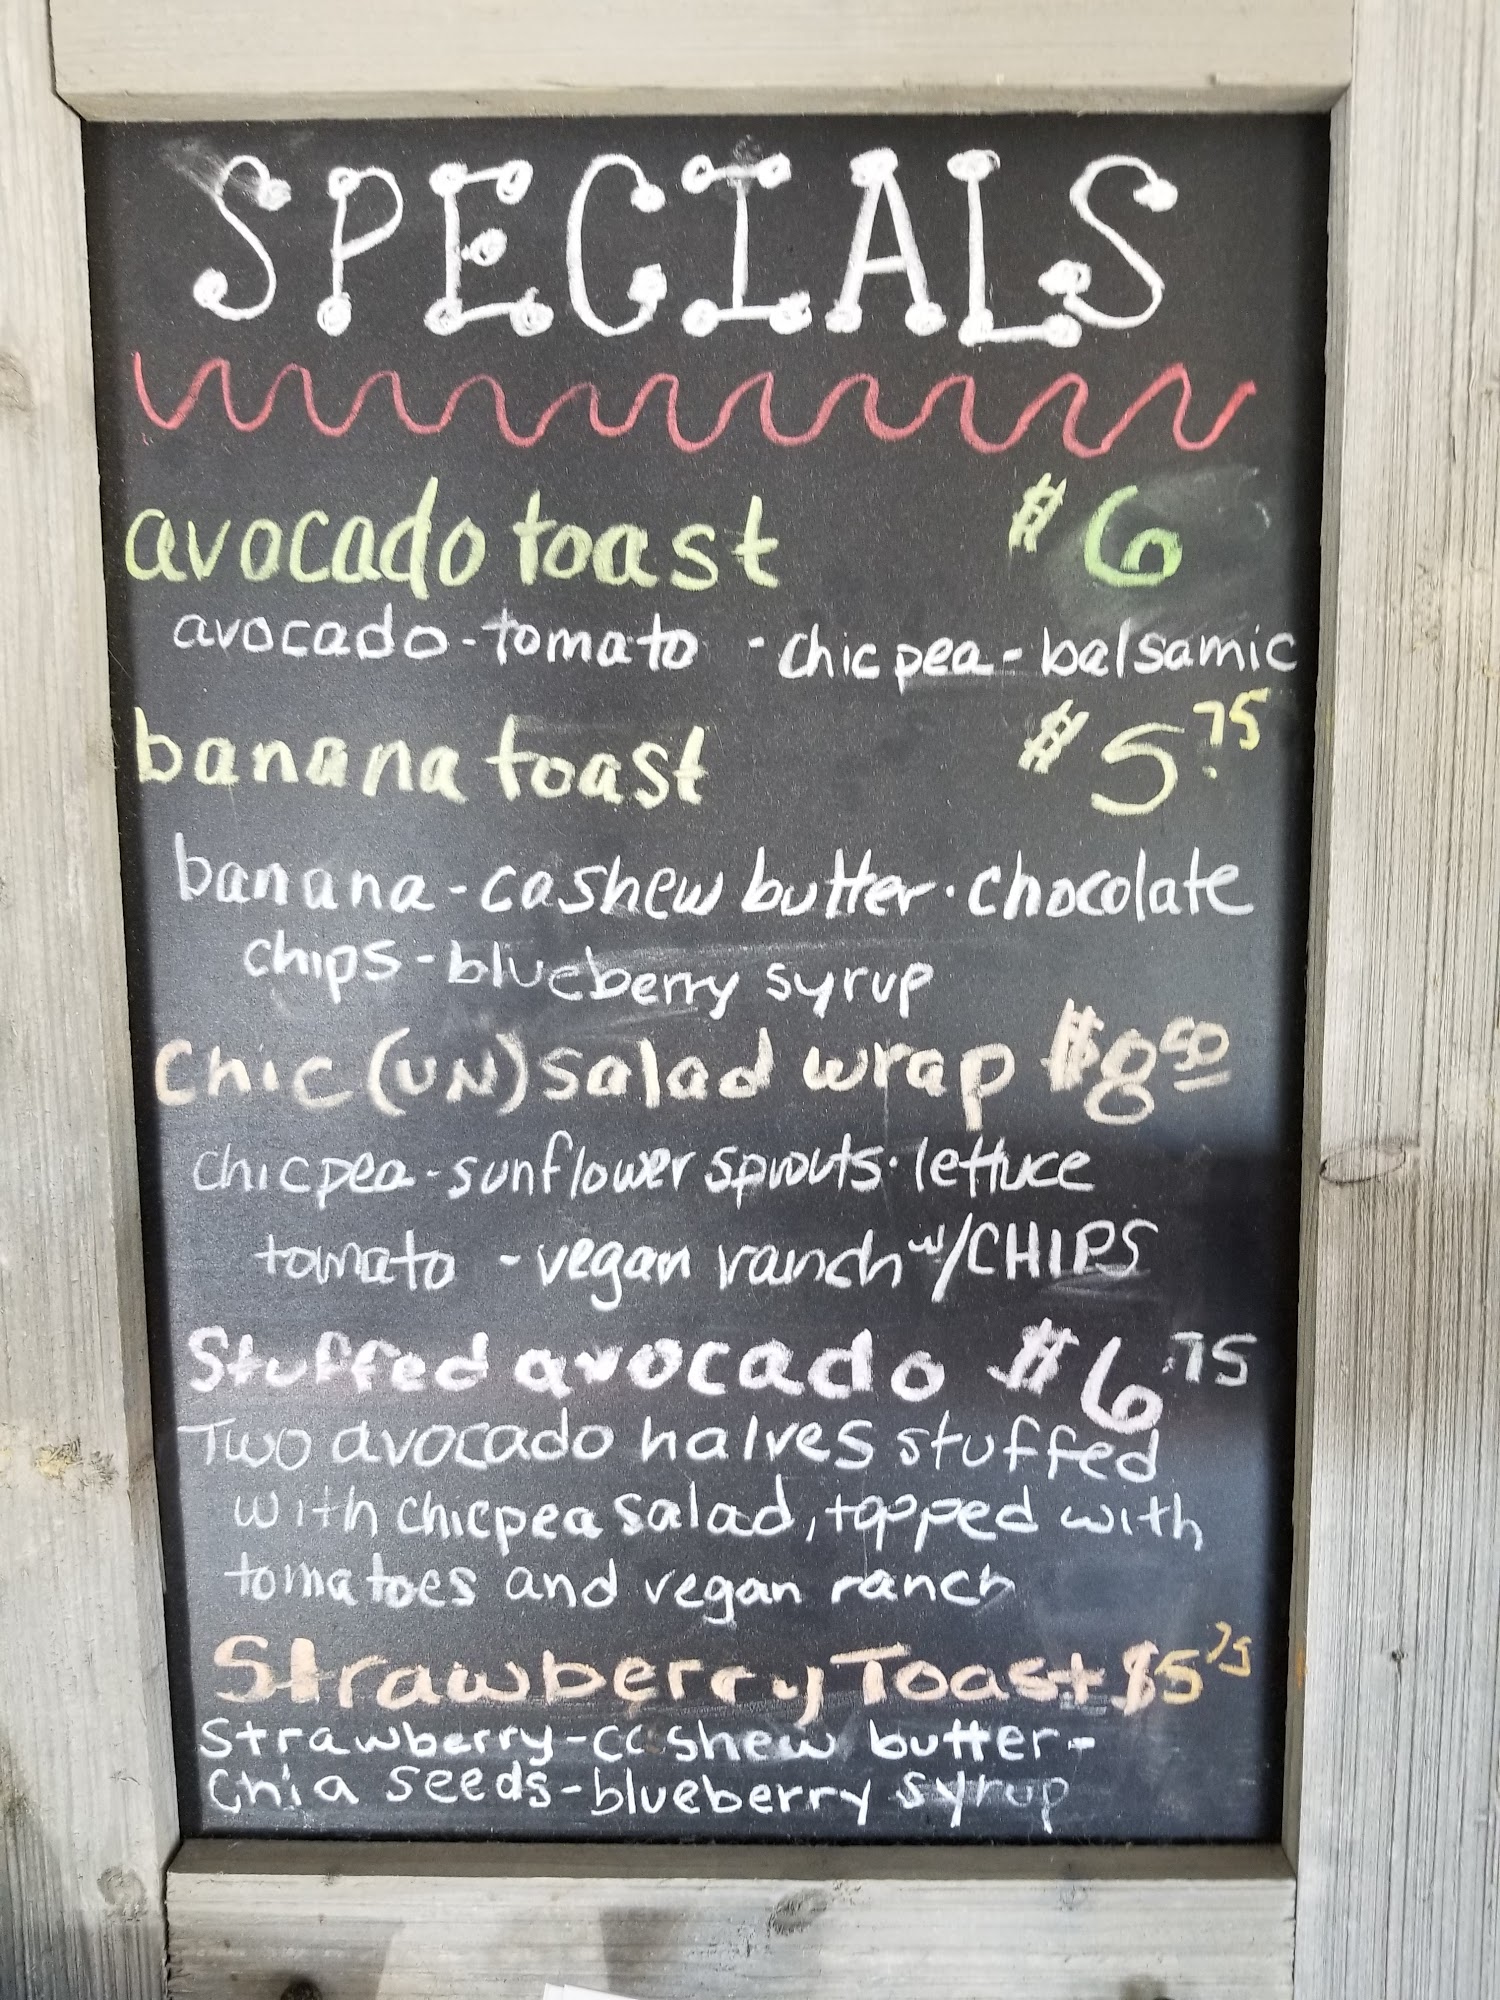 SPECIALS
avocado toast $6
avocado-tomato - chicpea - balsamic
banana toast $5.75
banana - cashew butter · chocolate
chips - blueberry syrup
Chic (UN) salad wrap $8 50
chicpea - sunflower sprouts · lettuce
tomato - vegan ranch w/CHIPS
Stuffed avocado $6.75
Two avocado halves stuffed
with chicpea salad, topped with
tomatoes and vegan ranch
Strawberry Toast $5 75
Strawberry-cashew butter-
Chia seeds-blueberry syrup